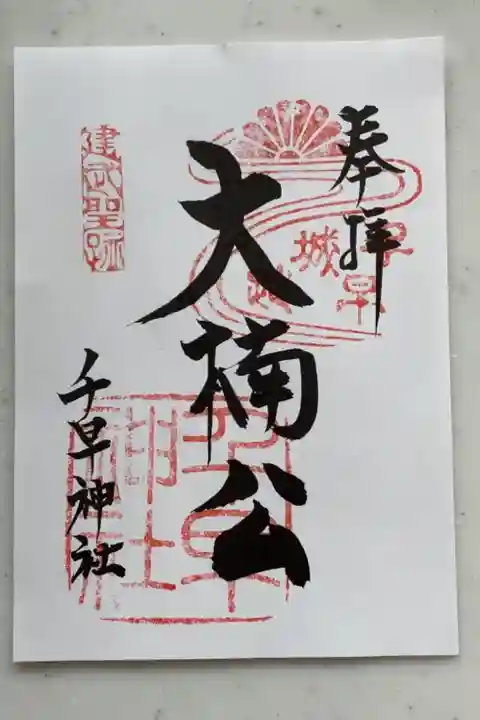 奉拝
千早
城
跡
大楠公
建武聖跡
千早神社
千早
神社